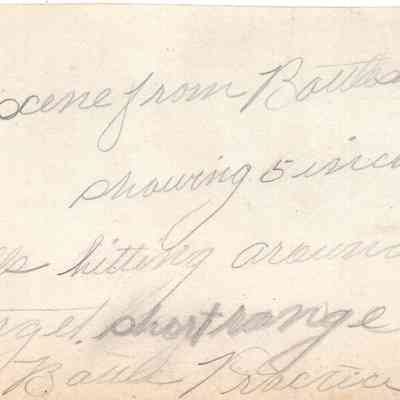 scene from Battles
showing 5 inc
hitting around
short range
Battle Practice